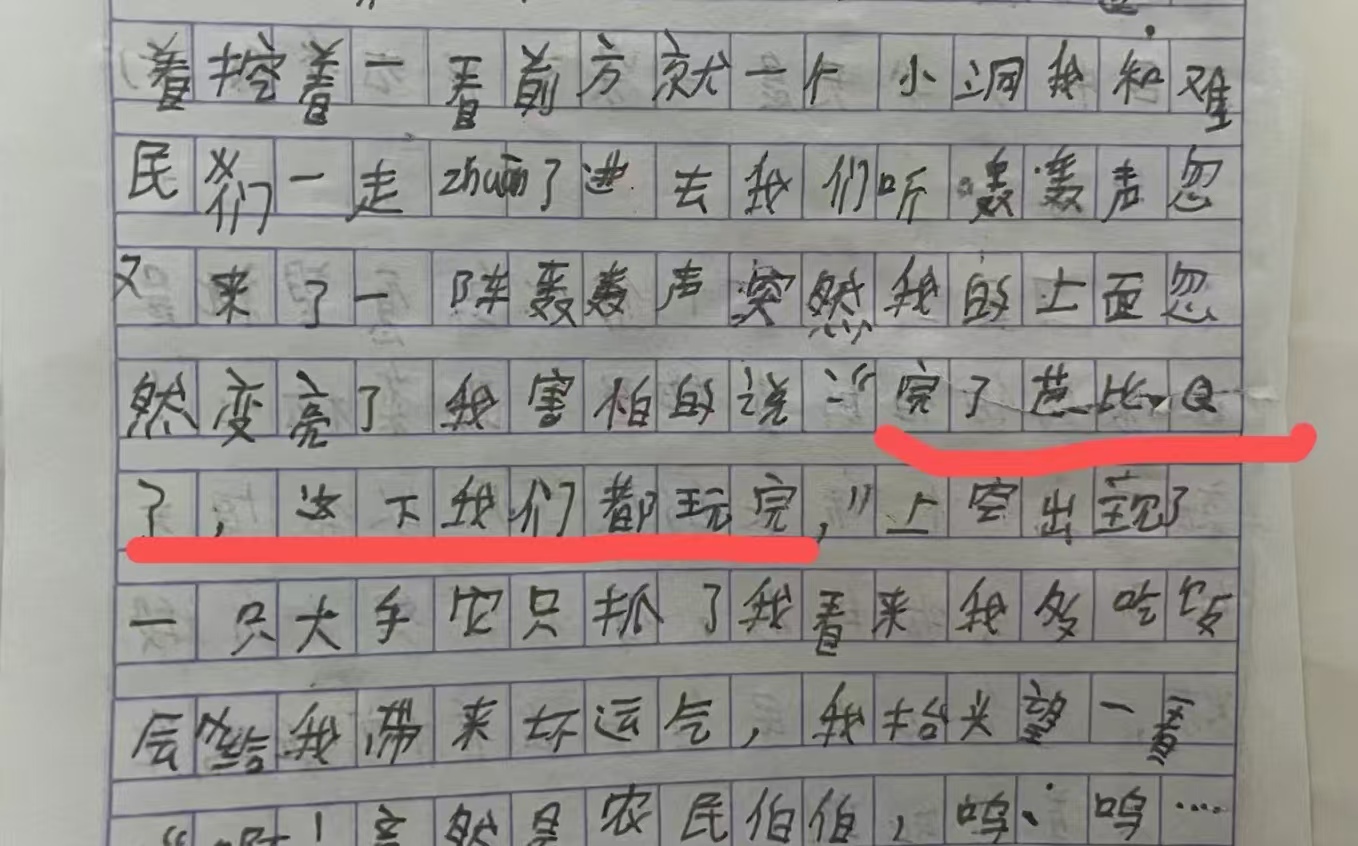 着挖着一看前方就一个小洞我和难
民们一走zhuān了进去我们听轰轰声忽
又来了一阵轰轰声突然我的上面忽
然变亮了我害怕的说:“完了芭比Q
了,这下我们都玩完,”上空出现了
一只大手它只抓了我看来我多吃饭
会给我带来坏运气,我抬头望一看
竟然是农民伯伯,呜、呜····